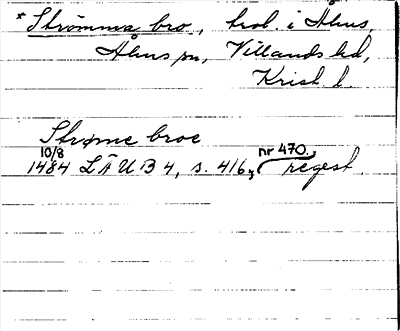 * Strömma bro, brol. i Åhus,
Åhus sn, Villands hd,
Krist. l.
Strøme broe
10/8 nr 470.
1484 LÄUB 4, s. 416, regest.